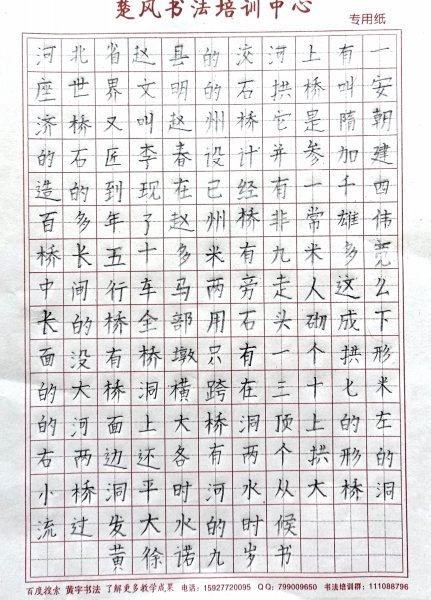 楚风书法培训中心
专用纸
河北省赵县的洨河上有一
座世界文明的石拱桥叫安
济桥又叫赵州桥它是隋朝
的石匠李春设计并参加建
造的到现在已经有一千四
百多年了赵州桥非常雄伟
桥长五十多米有九米多宽
中间行车马两旁走人这么
长的桥全部用石头砌成下
面没有桥墩只有一个拱形
的大桥洞横跨在三十七米
的河面上大桥洞顶上的左
右两边还各有两个拱形的
小桥洞平时河水从大桥洞
流过发大水的时候
黄徐诺九岁书
百度搜索 黄宇书法 了解更多教学成果 电话：15927720095 QQ：799009650 书法培训群：111088796